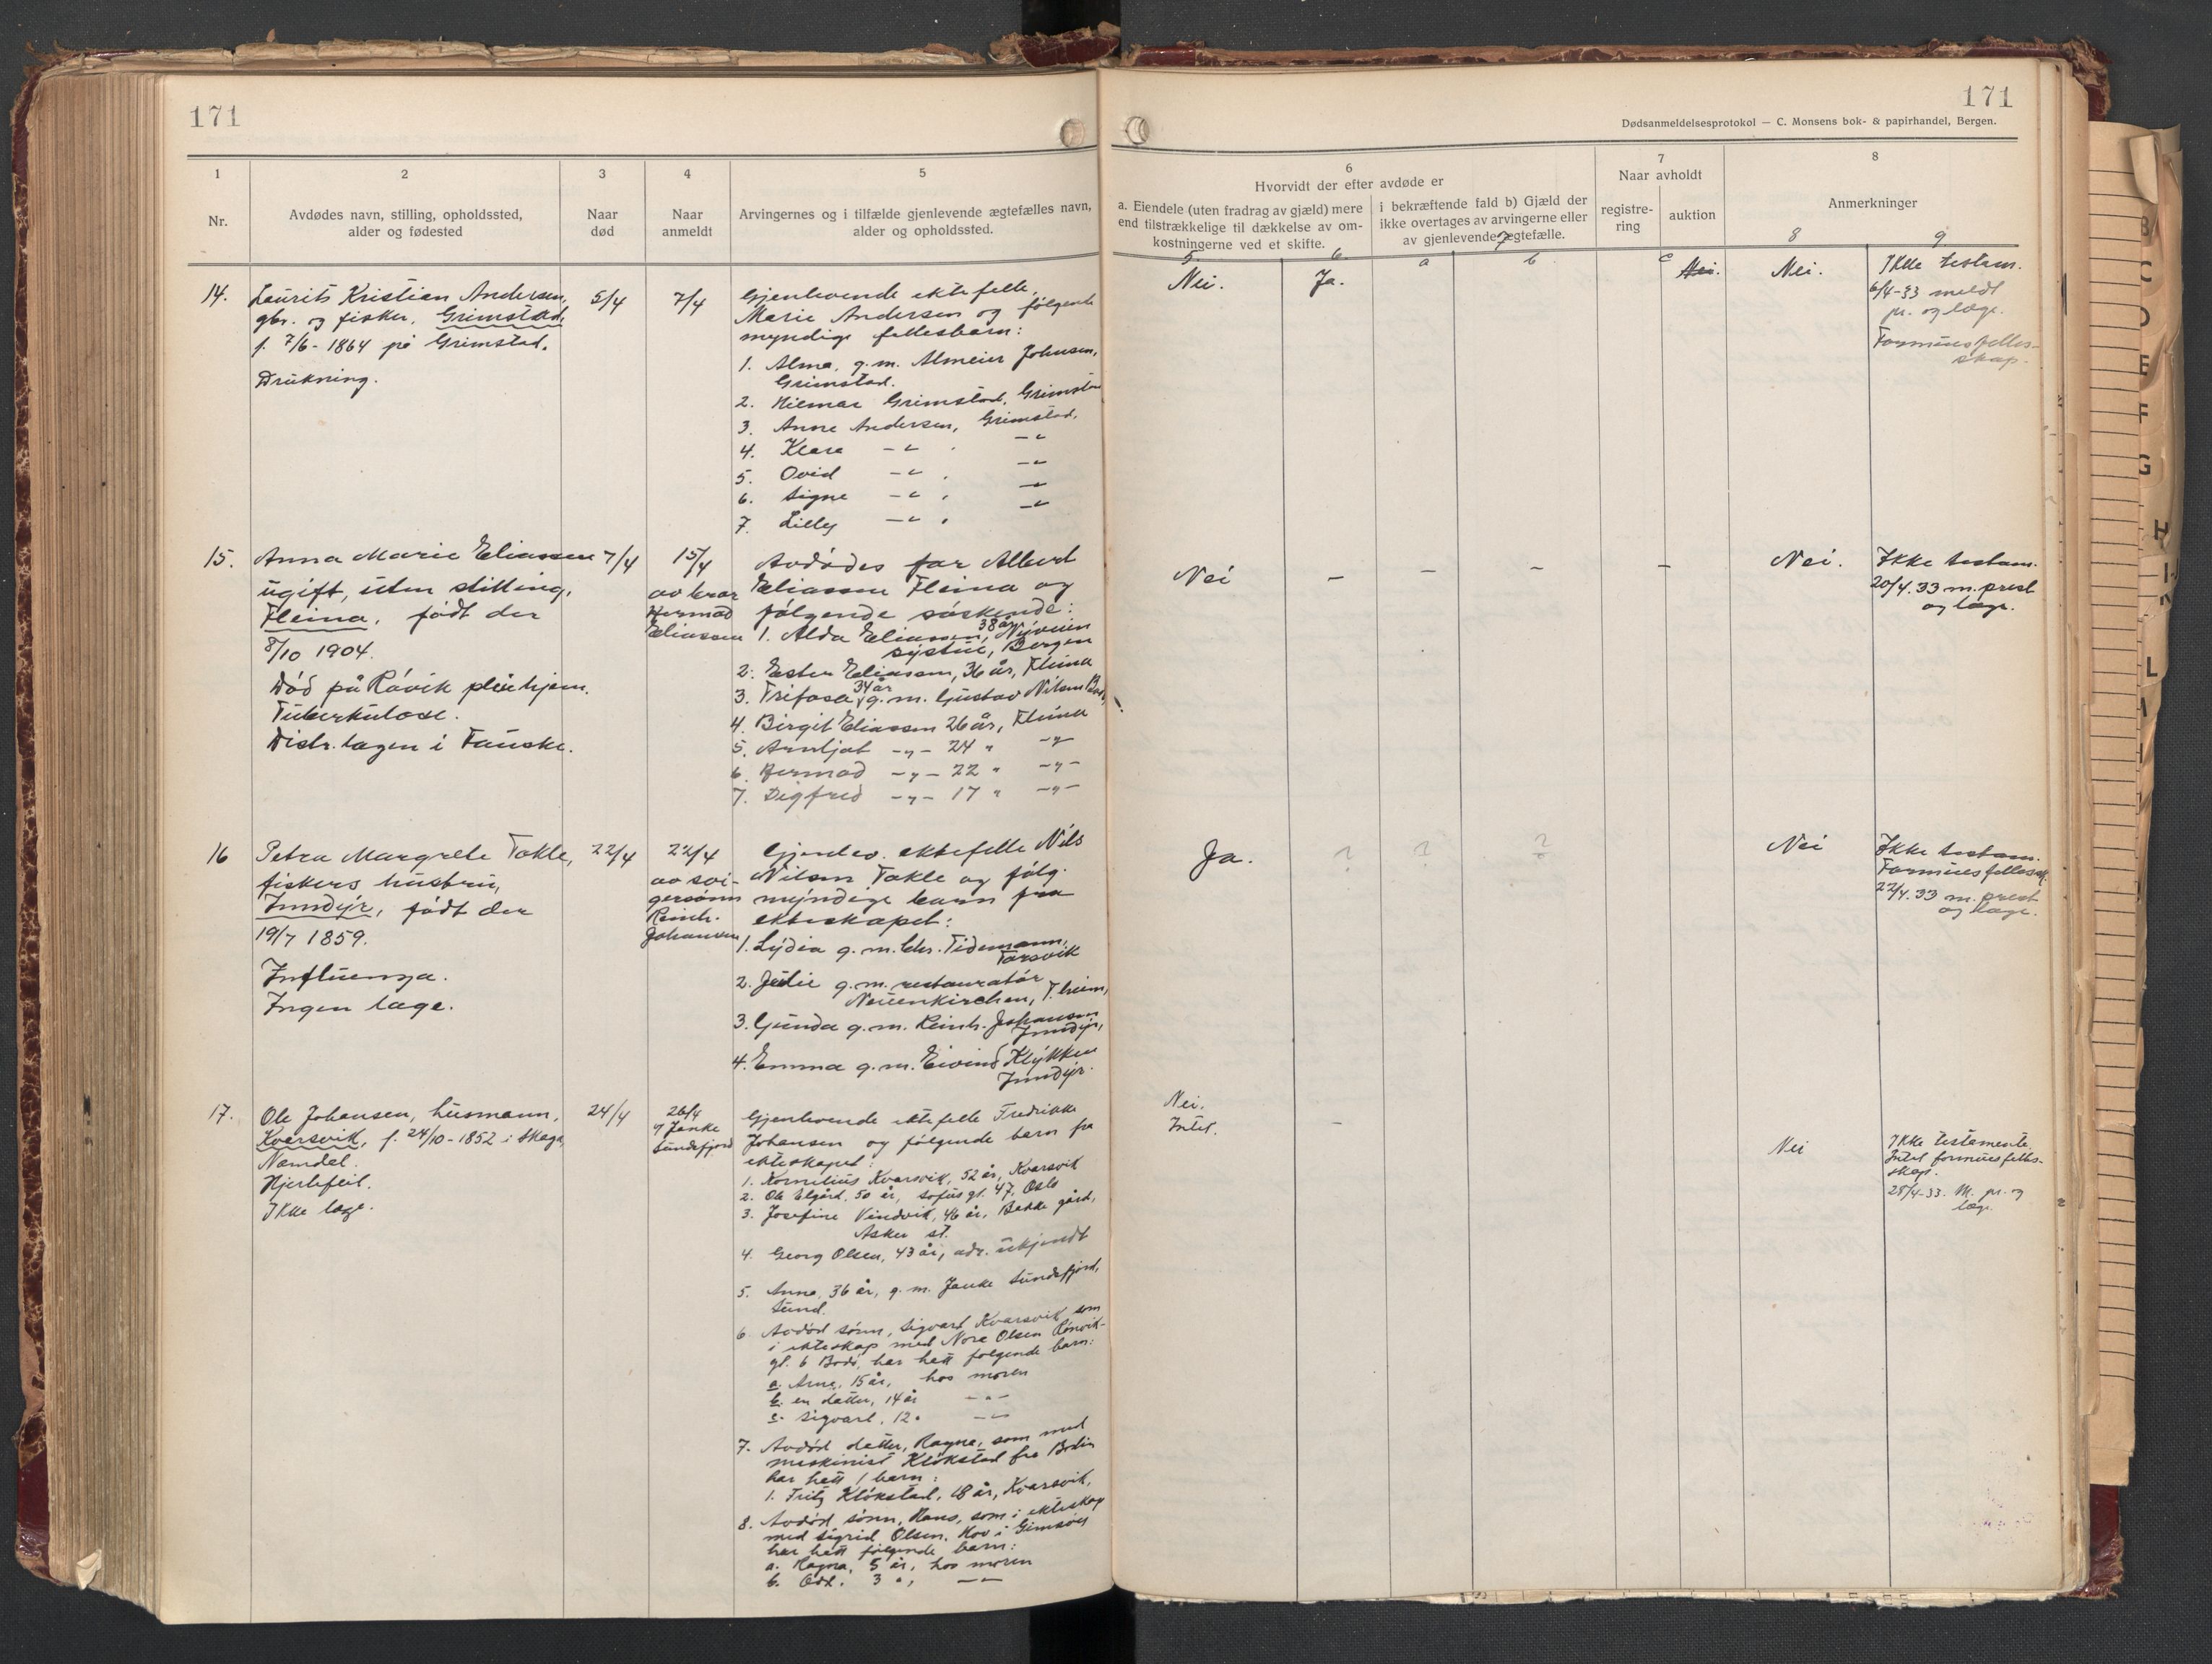 171
1
2
3
4
5
Nr.
Avdødes navn, stilling, opholdssted,
alder og fødested
Naar
død
Naar
anmeldt
Arvingernes og i tilfælde gjenlevende ægtefælles navn,
alder og opholdssted.
14.
Laurits Kristian Andersen,
gbr. og fisker, Grimstad,
f. 7/6 - 1864 på Grimstad.
Drukning.
5/4
7/4
Gjenlevende ektefelle,
Marie Andersen og følgende
myndige fellesbarn:
1. Alma, g.m. Almeier Johnsen,
Grimstad.
2. Hilmar Grimstad, Grimstad
3. Anne Andersen, Grimstad,
4. Klara -"- . -"
5. Ovid -"- , -"
6. Signe -"- , -"
7. Lilly -"- , -"
15.
Anna Marie Eliassen
ugift, uten stilling,
Fleina, født der
8/10 1904.
Død på Røvik pleiehjem.
Tuberkulose.
Distr.lægen i Fauske.
7/4
15/4
av bror
Hermod
Eliassen
Avdødes far Albert
Eliassen Fleina og
følgende søskende:
1. Alda Eliassen, 38 år, Nyveien
systue, Bergen
2. Ester Eliassen, 36 år, Fleina
3. Trifosa, 34 år g.m. Gustav Nilsen
4. Birgit Eliassen 26 år, Fleina
5. Arnljot -"- 24 " -"-
6. Hermod -"- 22 " -"-
7. Sigfred -"- 17 " -"-
16
Petra Margrete Takle,
fiskers hustru,
Inndyr, født der
19/7 1859.
Influenza.
Ingen læge.
22/4
22/4
av svi-
gersønn
Reinh.
Johansen
Gjenlev. ektefelle Nils
Nilsen Takle og følg.
myndige barn fra
ekteskapet:
1. Lydia g.m. Chr. Tidemann,
Tårsvik
2. Julie g.m. restauratør
Neuenkirchen, T.heim,
3. Gunda g.m. Reinh. Johansen
Inndyr,
4. Emma g.m. Eivind Klykken
Inndyr.
17.
Ole Johansen, husmann,
Kvarsvik, f. 24/10 - 1852 i Skage,
Namdal.
Hjertefeil.
Ikke læge.
24/4
26/4
v/ Janke
Sundsfjord
Gjenlevende ektefelle Fredrikke
Johansen og følgende barn fra
ekteskapet:
1. Kornelius Kvarsvik, 52 år, Kvarsvik
2. Ole Elgård, 50 år, Sofusgt. 47, Oslo
3. Josefine Vindvik, 46 år, Bakke gård,
Asker st.
4. Georg Olsen, 43 år, adr. ukjendt
5. Anna, 36 år, g.m. Janke Sundsfjord,
Sund.
6. Avdød sønn, Sigvart Kvarsvik, som
i ekteskap med Nora Olsen Rønvik-
gt. 6 Bodø, har hett følgende barn:
a. Arne, 15 år, hos moren
b. en datter, 14 år -"-
c. Sigvart, 12 " -"-
7. Avdød datter, Ragna, som med
maskinist Klökstad fra Bodin
har hett 1 barn:
1. Fritz Klökstad, 18 år, Kvarsvik,
8. Avdød sønn, Hans, som i ekteskap
med Sigrid Olsen, Hov i Gimsøy
har hett følgende barn:
a. Ragna, 5 år, hos moren
b. Odd, 3 ", -"-
171
Dødsanmeldelsesprotokol — C. Monsens bok- & papirhandel, Bergen.
6
Hvorvidt der efter avdøde er
a. Eiendele (uten fradrag av gjæld) mere
end tilstrækkelige til dækkelse av om-
kostningerne ved et skifte.
i bekræftende fald b) Gjæld der
ikke overtages av arvingerne eller
av gjenlevende ægtefælle.
7
Naar avholdt
registre-
ring
auktion
8
Anmerkninger
5. 6. 7 a b c 8 9
Nei. Ja. Nei. Nei.
Ikke testam.
6/4-33 meldt
pr. og læge.
Formuesfelles-
skap.
Nei - - - - Nei.
Ikke testam.
20/4.33 m. prest
og læge.
Ja. ? ? ? Nei
Ikke testam.
Formuesfellessk.
22/4.33 m. prest
og læge.
Nei.
Intet. - Nei
Ikke testamente.
Intet formuesfelles-
skap.
28/4-33. M. pr. og
læge.
B
C
D
E
F
G
H
L